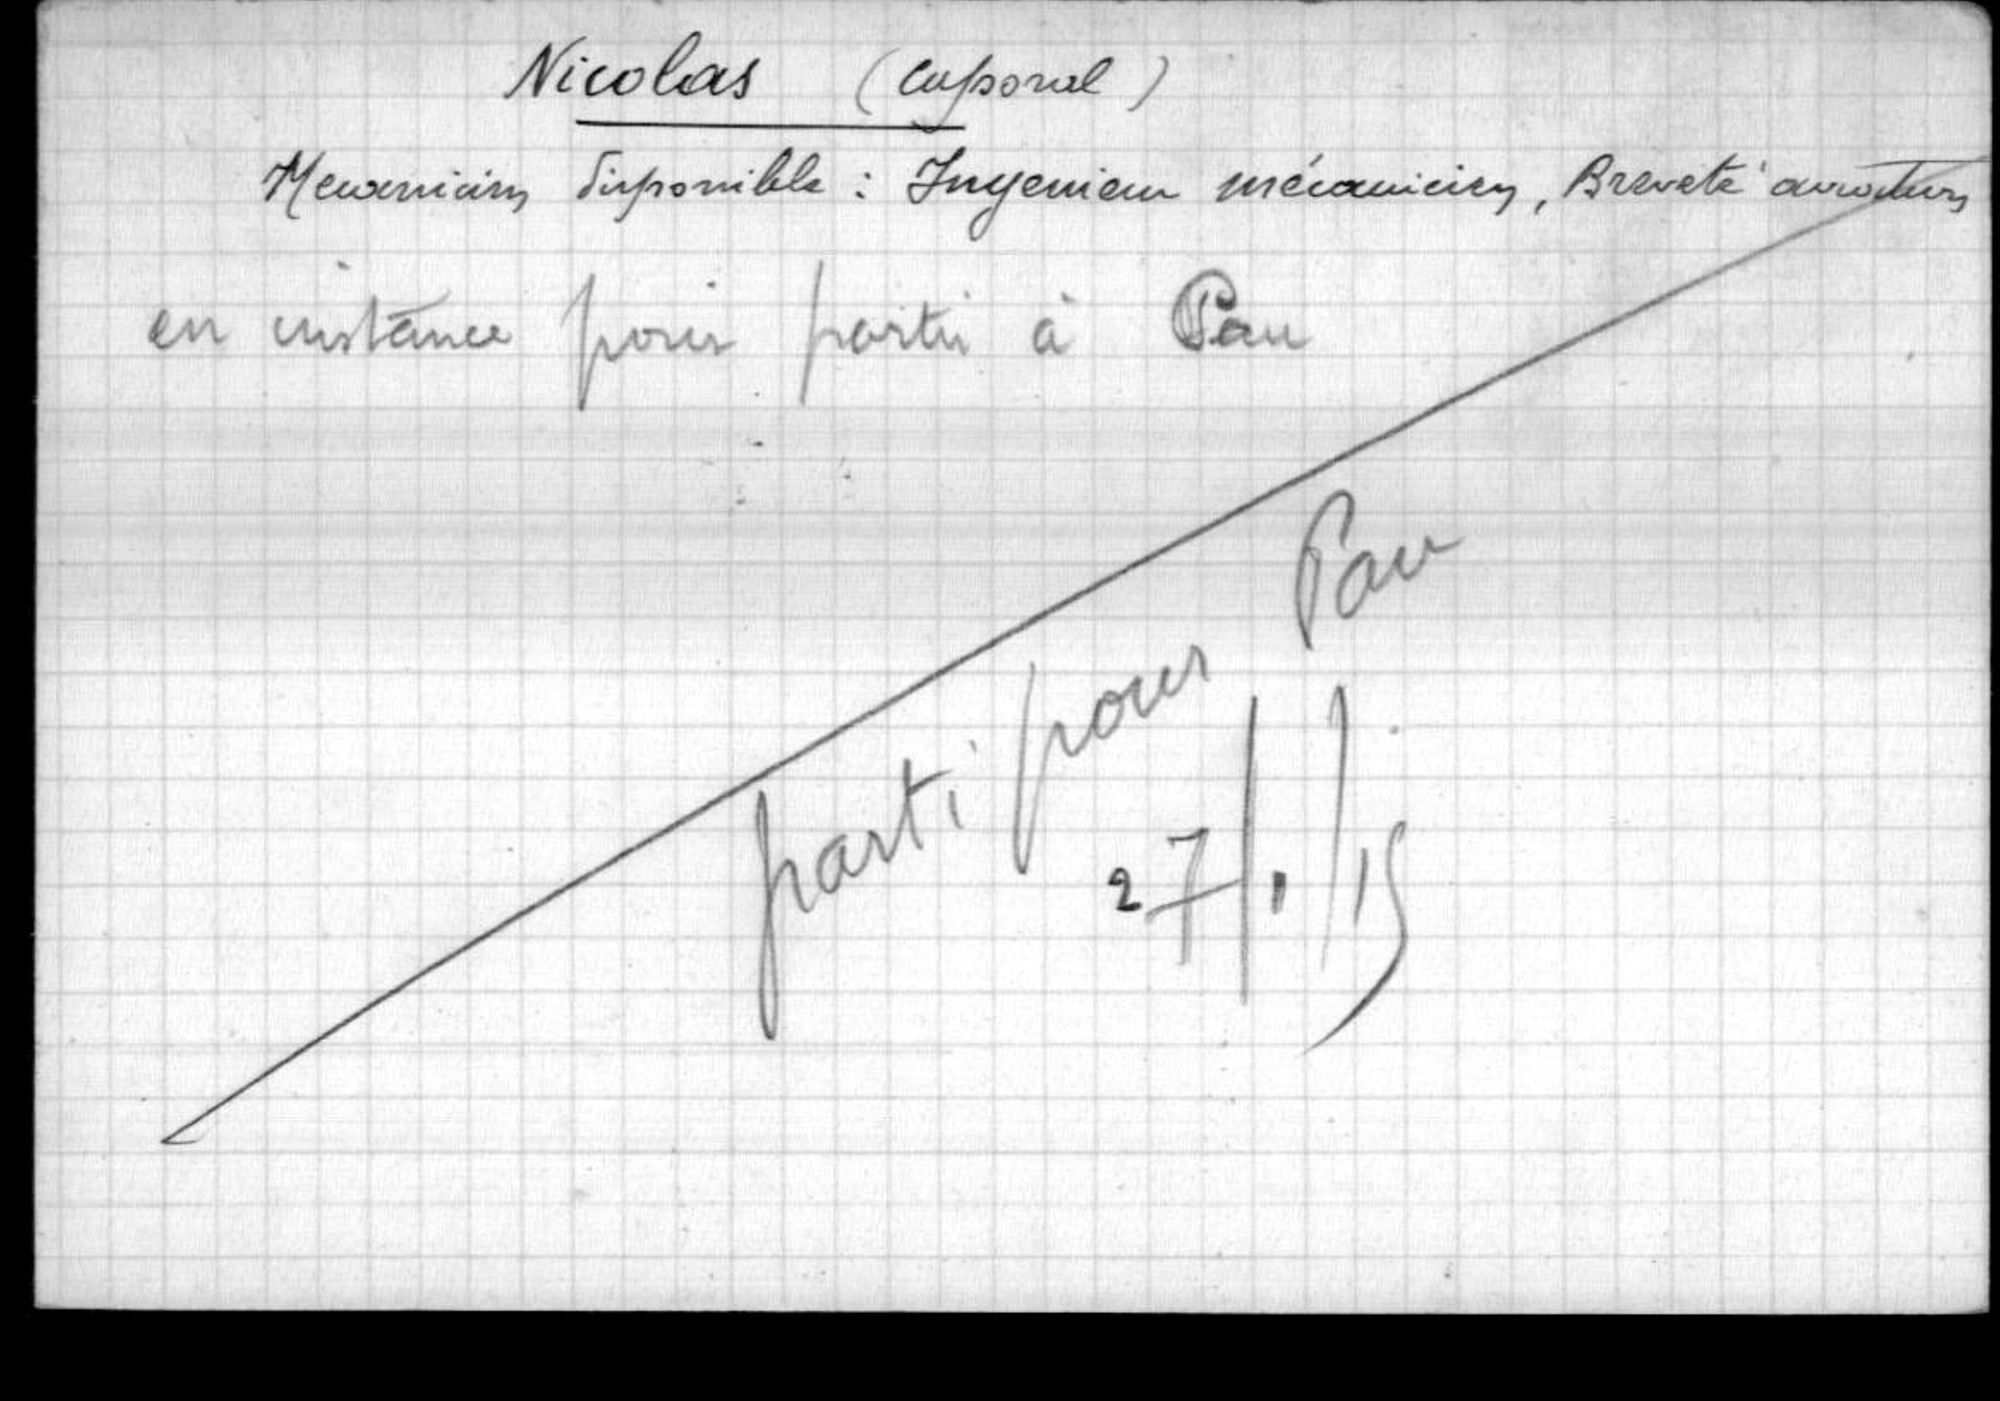 Nicolas (caporal)
Mecanicien disponible : Ingenieur mécanicien, Breveté aviateur
en instance pour partir à Pau
parti pour Pau
27/1/15